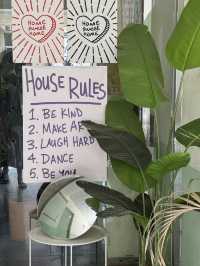 HOME
SWEET
HOME
HOME
SWEET
HOME
HOUSE RULES
1. BE KIND
2. MAKE AR
3. LAUGH HARD
4. DANCE
5. BE YOU